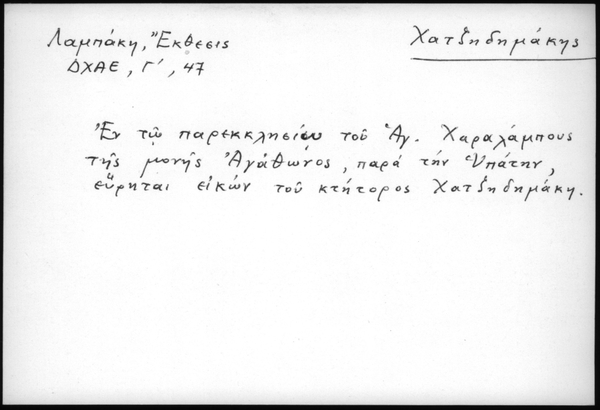 Λαμπάκη, Ἔκθεσις
Χατζηδημάκης
ΔΧΑΕ, Γ', 47
Ἐν τῷ παρεκκλησίῳ τοῦ Ἁγ. Χαραλάμπους
τῆς μονῆς Ἀγάθωνος, παρά τήν Ὑπάτην,
εὕρηται εἰκών τοῦ κτήτορος Χατζηδημάκη.